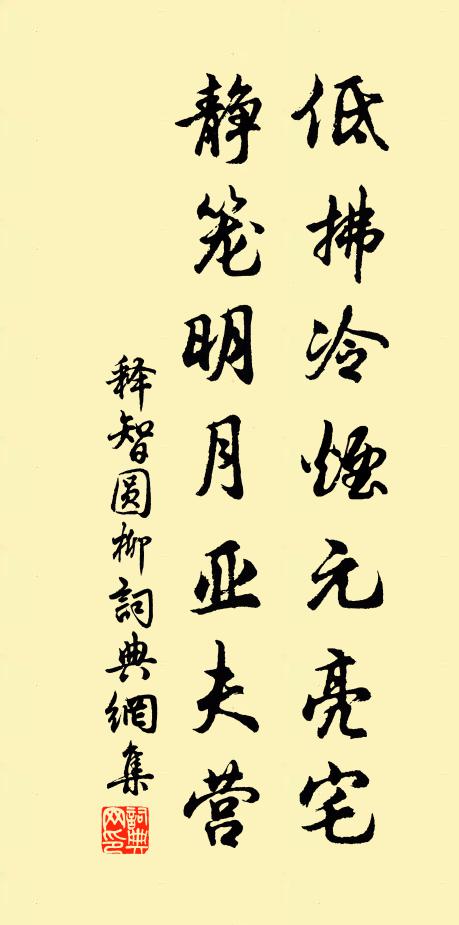 低拂冷烟元亮宅
静笼明月亚夫营
释智圆柳詞典網集
詞典网印